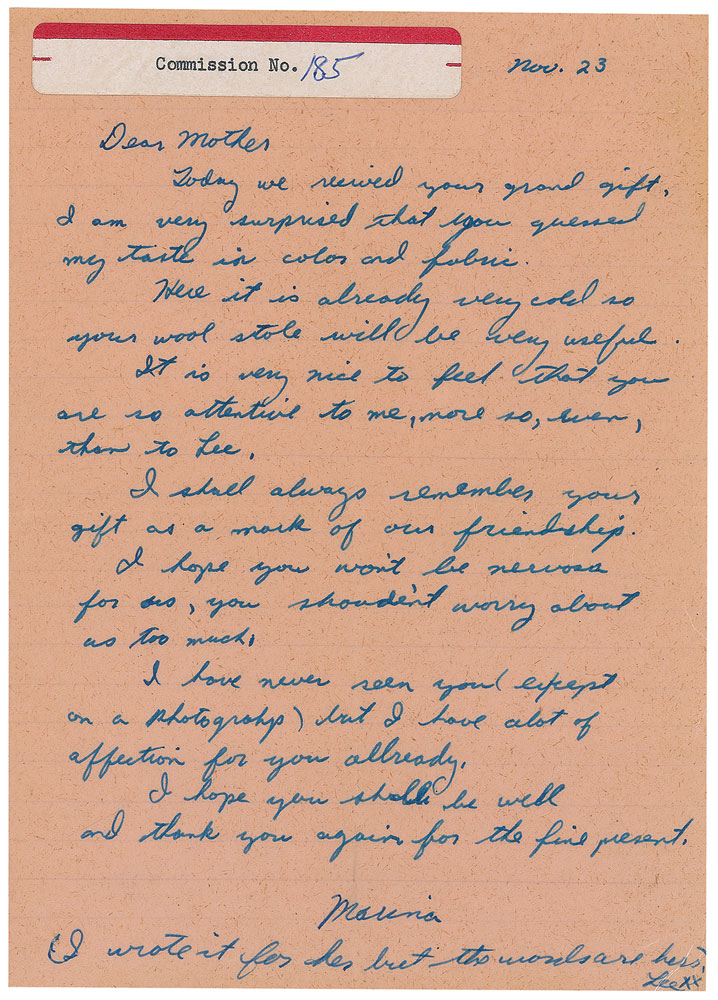 Commission No. 185
Nov. 23
Dear Mother
Today we recived your grand gift.
I am very surprised that you guessed
my taste in color and fabric.
Here it is already very cold so
your wool stole will be very useful.
It is very nice to feel that you
are so attentive to me, more so, even,
than to Lee.
I shall always remember your
gift as a mark of our friendship.
I hope you won't be nervosa
for us, you shoulde'nt worry about
us too much.
I have never seen you (except
on a photograhps) but I have alot of
affection for you allready.
I hope you shall be well
and thank you again for the fine present.
Marina
(I wrote it for her but the words are hers.
Lee xx